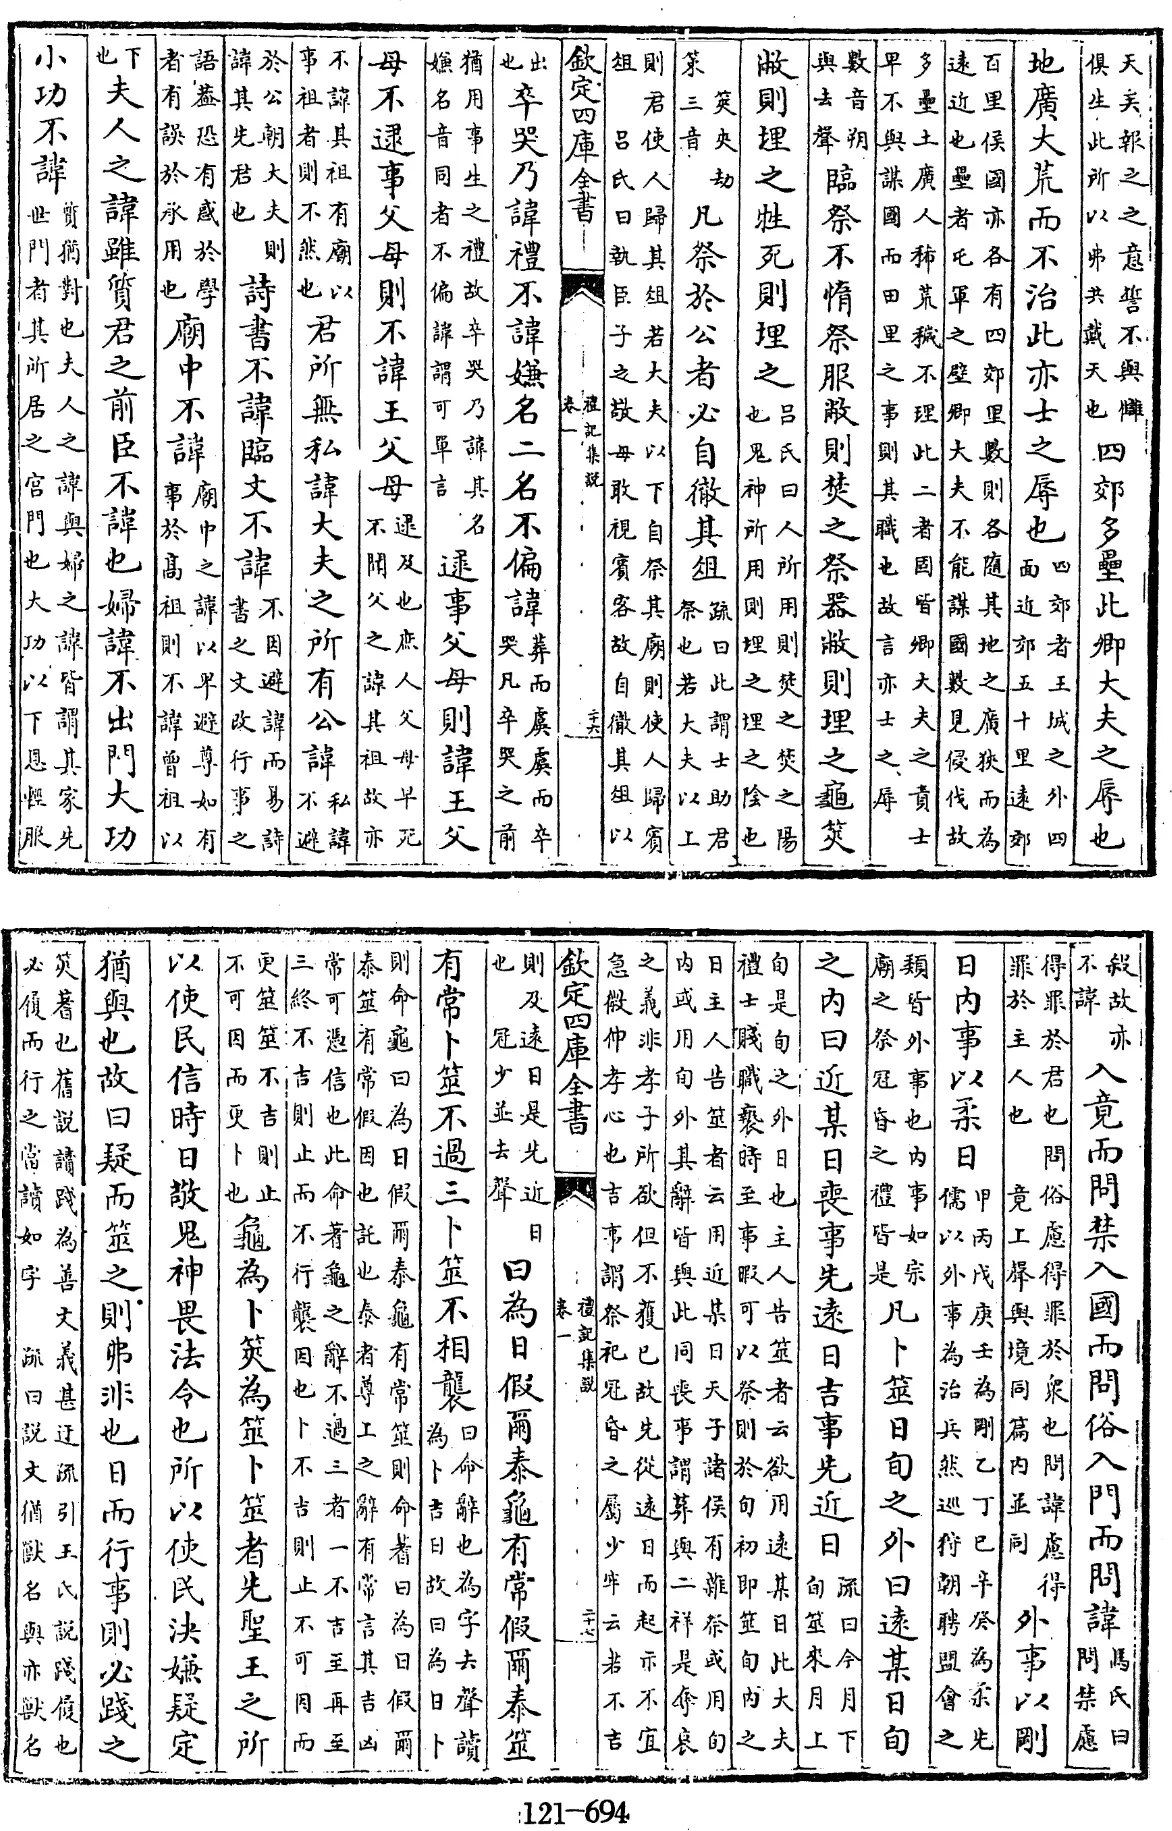 天矣報之之意誓不與讎俱生此所以弗共戴天也四郊多壘此卿大夫之辱也
地廣大荒而不治此亦士之辱也四郊者王城之外四面近郊五十里遠郊
百里侯國亦各有四郊里數則各隨其地之廣狹而為遠近也壘者屯軍之壁卿大夫不能謀國數見侵伐故
多壘土廣人稀荒穢不理此二者固皆卿大夫之責士卑不與謀國而田里之事則其職也故言亦士之辱
數音朔與去聲臨祭不惰祭服敝則焚之祭器敝則埋之龜筴
敝則埋之牲死則埋之呂氏曰人所用則焚之焚之陽也鬼神所用則埋之埋之陰也
筴夾劫策三音凡祭於公者必自徹其俎疏曰此謂士助君祭也若大夫以上
則君使人歸其俎若大夫以下自祭其廟則使人歸賓俎 呂氏曰執臣子之敬毋敢視賓客故自徹其俎以
欽定四庫全書 禮記集説 卷一 二十六
出也卒哭乃諱禮不諱嫌名二名不偏諱葬而虞虞而卒哭凡卒哭之前
猶用事生之禮故卒哭乃諱其名嫌名音同者不偏諱謂可單言逮事父母則諱王父
母不逮事父母則不諱王父母逮及也庶人父母早死不聞父之諱其祖故亦
不諱其祖有廟以事祖者則不然也君所無私諱大夫之所有公諱私諱不避
於公朝大夫則諱其先君也詩書不諱臨文不諱不因避諱而易詩書之文改行事之
語蓋恐有惑於學者有誤於承用也廟中不諱廟中之諱以卑避尊如有事於高祖則不諱曾祖以
下也夫人之諱雖質君之前臣不諱也婦諱不出門大功
小功不諱質猶對也夫人之諱與婦之諱皆謂其家先世門者其所居之宮門也大功以下恩輕服
殺故亦不諱入竟而問禁入國而問俗入門而問諱馬氏曰問禁慮
得罪於君也問俗慮得罪於衆也問諱慮得罪於主人也 竟上聲與境同篇内並同外事以剛
日内事以柔日甲丙戊庚壬為剛乙丁巳辛癸為柔先儒以外事為治兵然巡狩朝聘盟會之
類皆外事也内事如宗廟之祭冠昏之禮皆是凡卜筮日旬之外曰遠某日旬
之内曰近某日喪事先遠日吉事先近日疏曰今月下旬筮來月上
旬是旬之外日也主人告筮者云欲用遠某日此大夫禮士賤職褻時至事暇可以祭則於旬初即筮旬内之
日主人告筮者云用近某日天子諸侯有雜祭或用旬内或用旬外其辭皆與此同喪事謂葬與二祥是奪哀
之義非孝子所欲但不獲已故先從遠日而起示不宜急微伸孝心也吉事謂祭祀冠昏之屬少牢云若不吉
欽定四庫全書 禮記集説 卷一 二十七
則及遠日是先近日也 冠少並去聲曰為日假爾泰龜有常假爾泰筮
有常卜筮不過三卜筮不相襲曰命辭也為字去聲讀為卜吉日故曰為日卜
則命龜曰為日假爾泰龜有常筮則命蓍曰為日假爾泰筮有常假因也託也泰者尊上之辭有常言其吉凶
常可憑信也此命蓍龜之辭不過三者一不吉至再至三終不吉則止而不行襲因也卜不吉則止不可因而
更筮筮不吉則止不可因而更卜也龜為卜筴為筮卜筮者先聖王之所
以使民信時日敬鬼神畏法令也所以使民決嫌疑定
猶與也故曰疑而筮之則弗非也日而行事則必踐之
筴蓍也舊説讀踐為善文義甚迂疏引王氏説踐履也必履而行之當讀如字 疏曰説文猶獸名與亦獸名
121-694